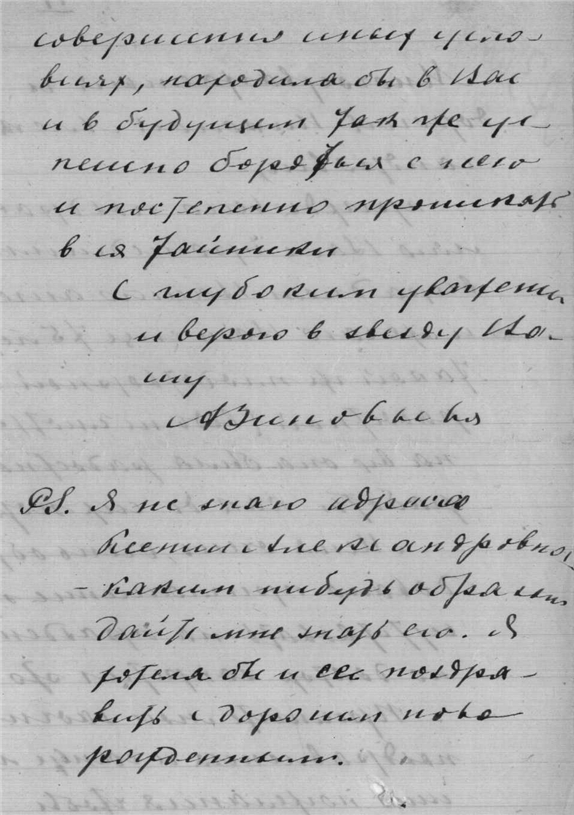 совершенно иных усло-
виях, народила бы в Вас
и в будущем так же ус-
пешно бороться с нею
и постепенно проникать
в ея тайники
С глубоким уважением
и верою в звезду Ва-
шу
А Зиновьева
PS. Я не знаю адреса
Ксении Александровны,
- каким нибудь образом
дайте мне знать его. Я
хотела бы и ее поздра-
вить с дорогим ново
рожденным.